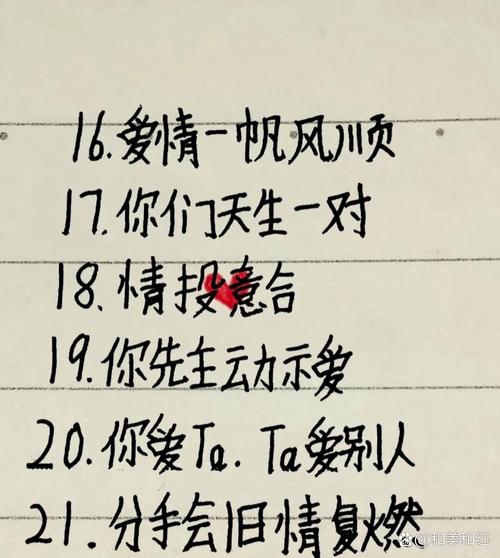 16.爱情一帆风顺
17.你们天生一对
18.情投意合
19.你先主动示爱
20.你爱Ta.Ta爱别人
21.分手会旧情复燃
@和美相红